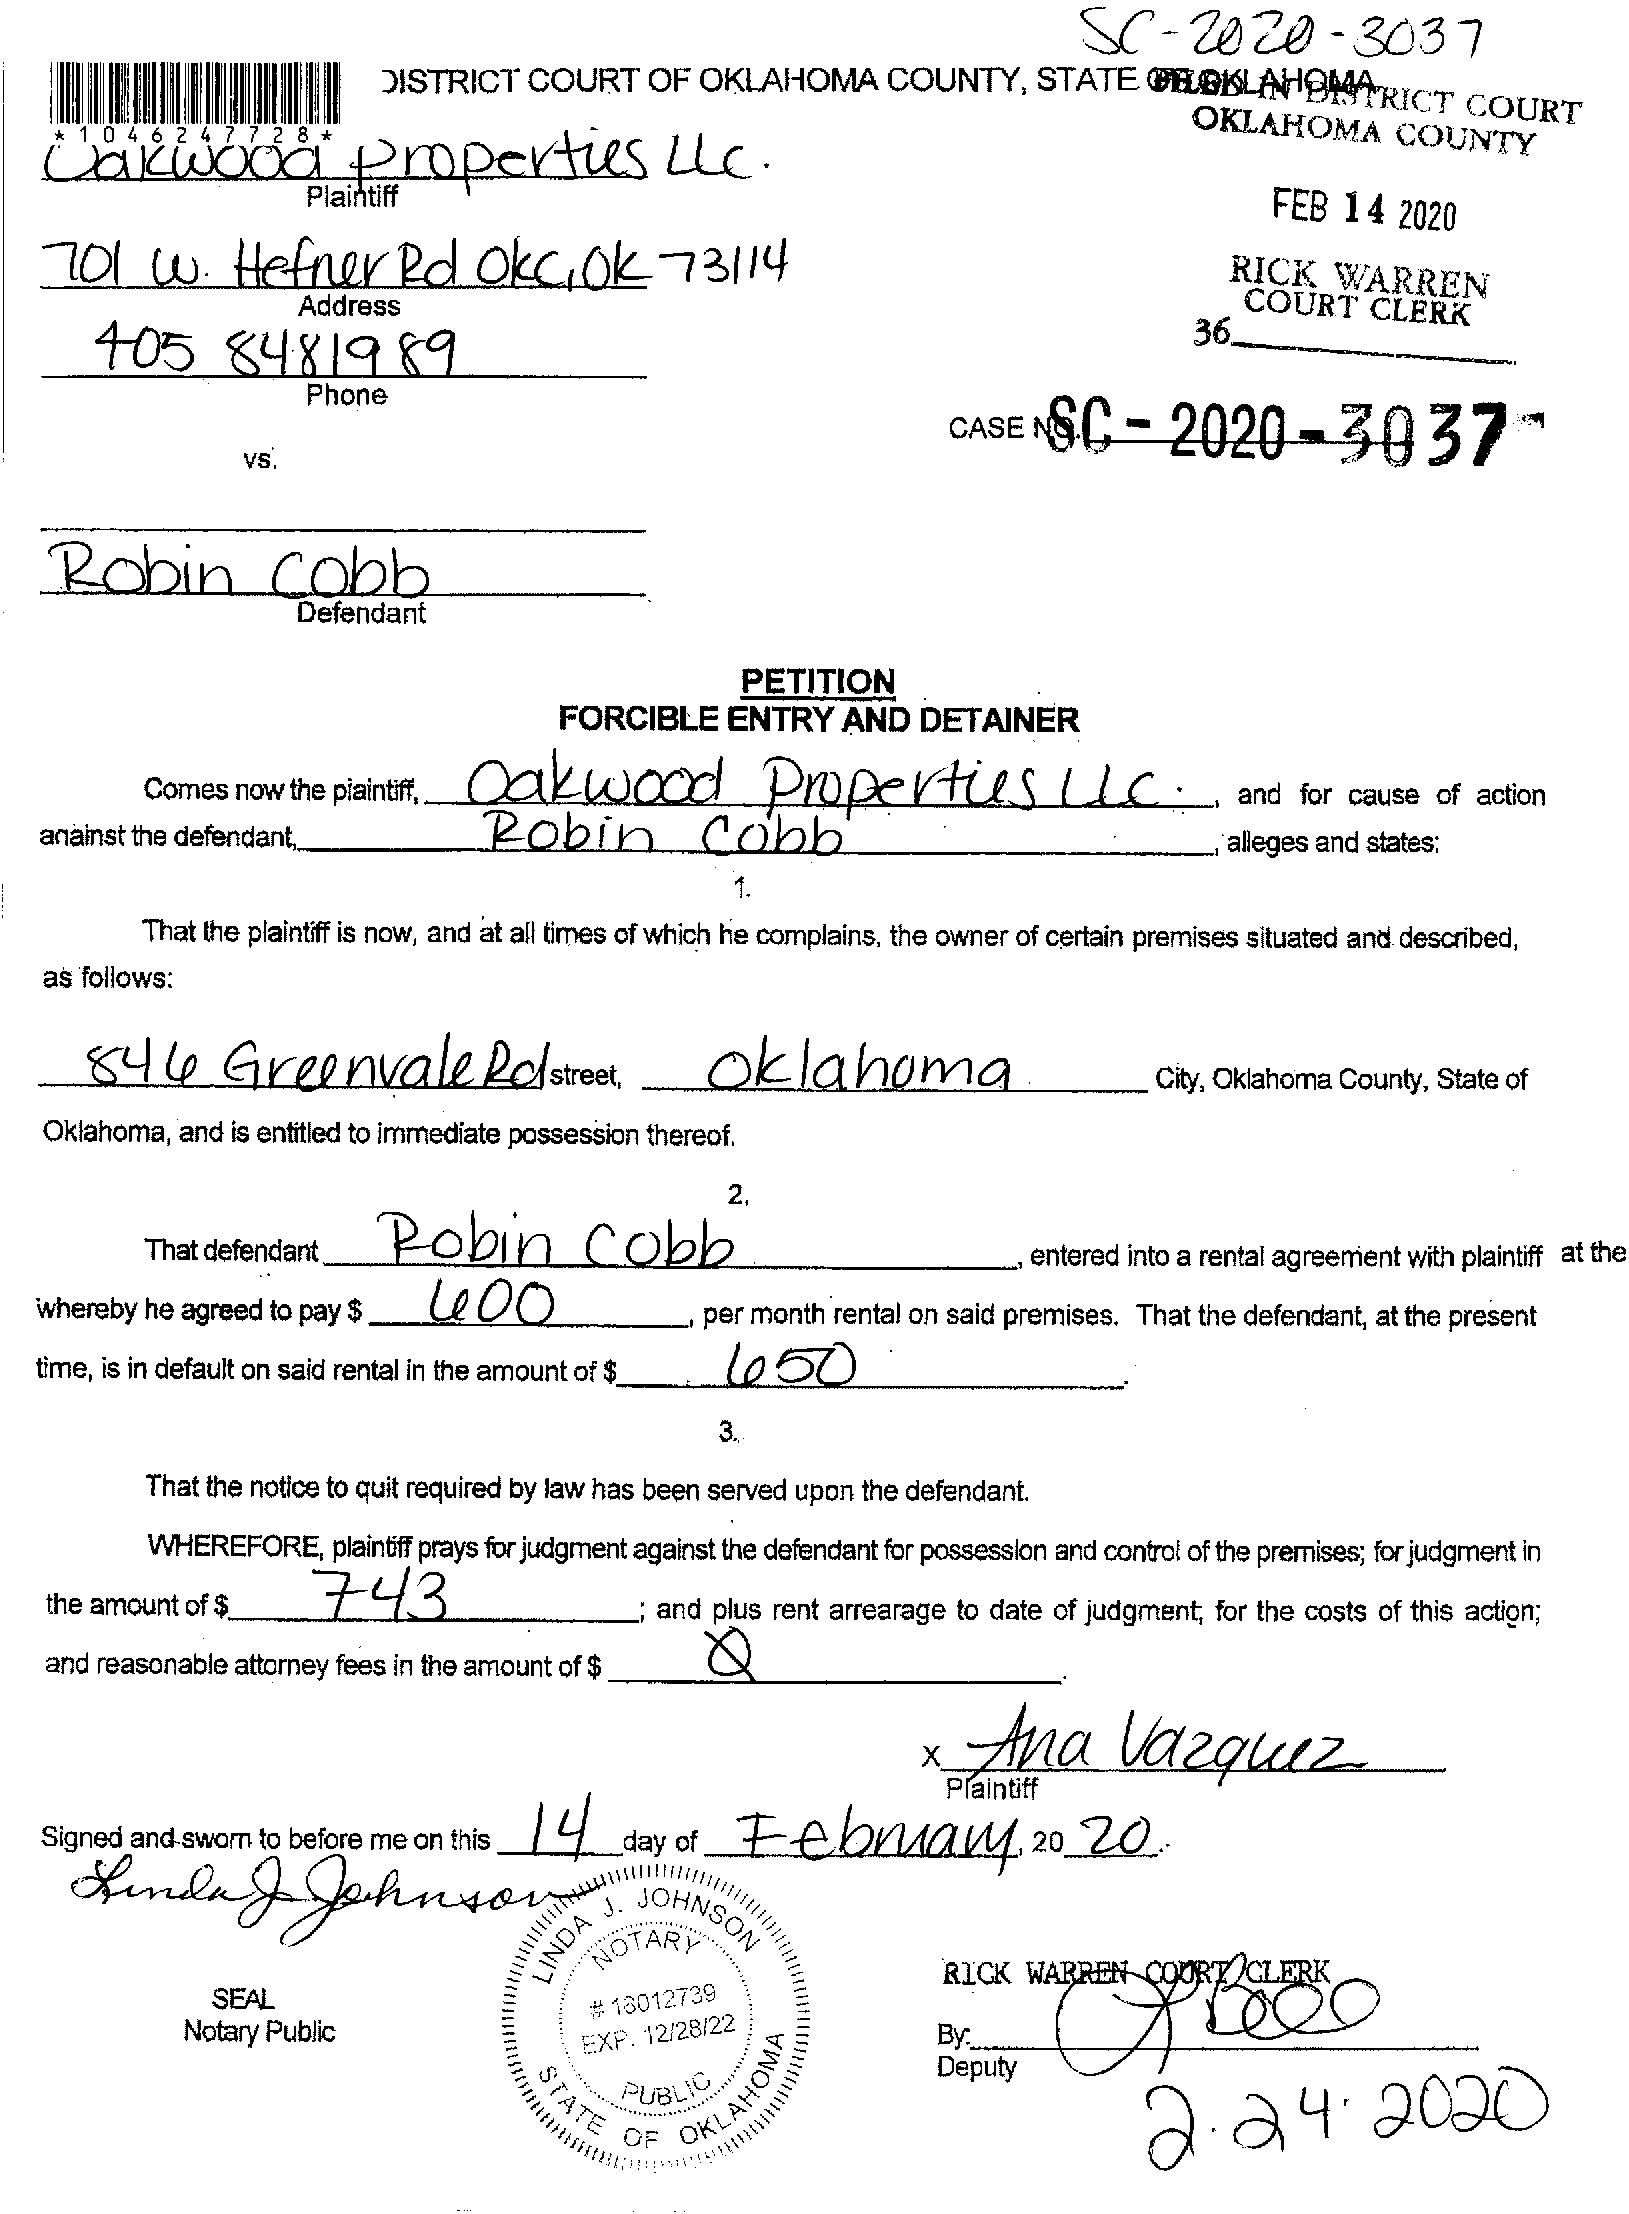 SC-2020-3037
DISTRICT COURT OF OKLAHOMA COUNTY, STATE OF OKLAHOMA
FILED IN DISTRICT COURT
OKLAHOMA COUNTY
*1046247728*
Oakwood Properties LLC.
Plaintiff
FEB 14 2020
701 W. Hefner Rd OKC, OK 73114
Address
RICK WARREN
COURT CLERK
36
405 8481989
Phone
CASE NO. SC-2020-3037
vs.
Robin Cobb
Defendant
PETITION
FORCIBLE ENTRY AND DETAINER
Comes now the plaintiff, Oakwood Properties LLC. , and for cause of action
against the defendant, Robin Cobb , alleges and states:
1.
That the plaintiff is now, and at all times of which he complains, the owner of certain premises situated and described,
as follows:
846 Greenvale Rd street, Oklahoma City, Oklahoma County, State of
Oklahoma, and is entitled to immediate possession thereof.
2.
That defendant Robin Cobb , entered into a rental agreement with plaintiff at the
whereby he agreed to pay $ 600 , per month rental on said premises. That the defendant, at the present
time, is in default on said rental in the amount of $ 650 .
3.
That the notice to quit required by law has been served upon the defendant.
WHEREFORE, plaintiff prays for judgment against the defendant for possession and control of the premises; for judgment in
the amount of $ 743 ; and plus rent arrearage to date of judgment; for the costs of this action;
and reasonable attorney fees in the amount of $ 0 .
x Ana Vazquez
Plaintiff
Signed and sworn to before me on this 14 day of February, 20 20.
Linda J Johnson
LINDA J. JOHNSON
NOTARY
# 18012739
EXP. 12/28/22
PUBLIC
STATE OF OKLAHOMA
SEAL
Notary Public
RICK WARREN COURT CLERK
By:
Deputy
2.24.2020